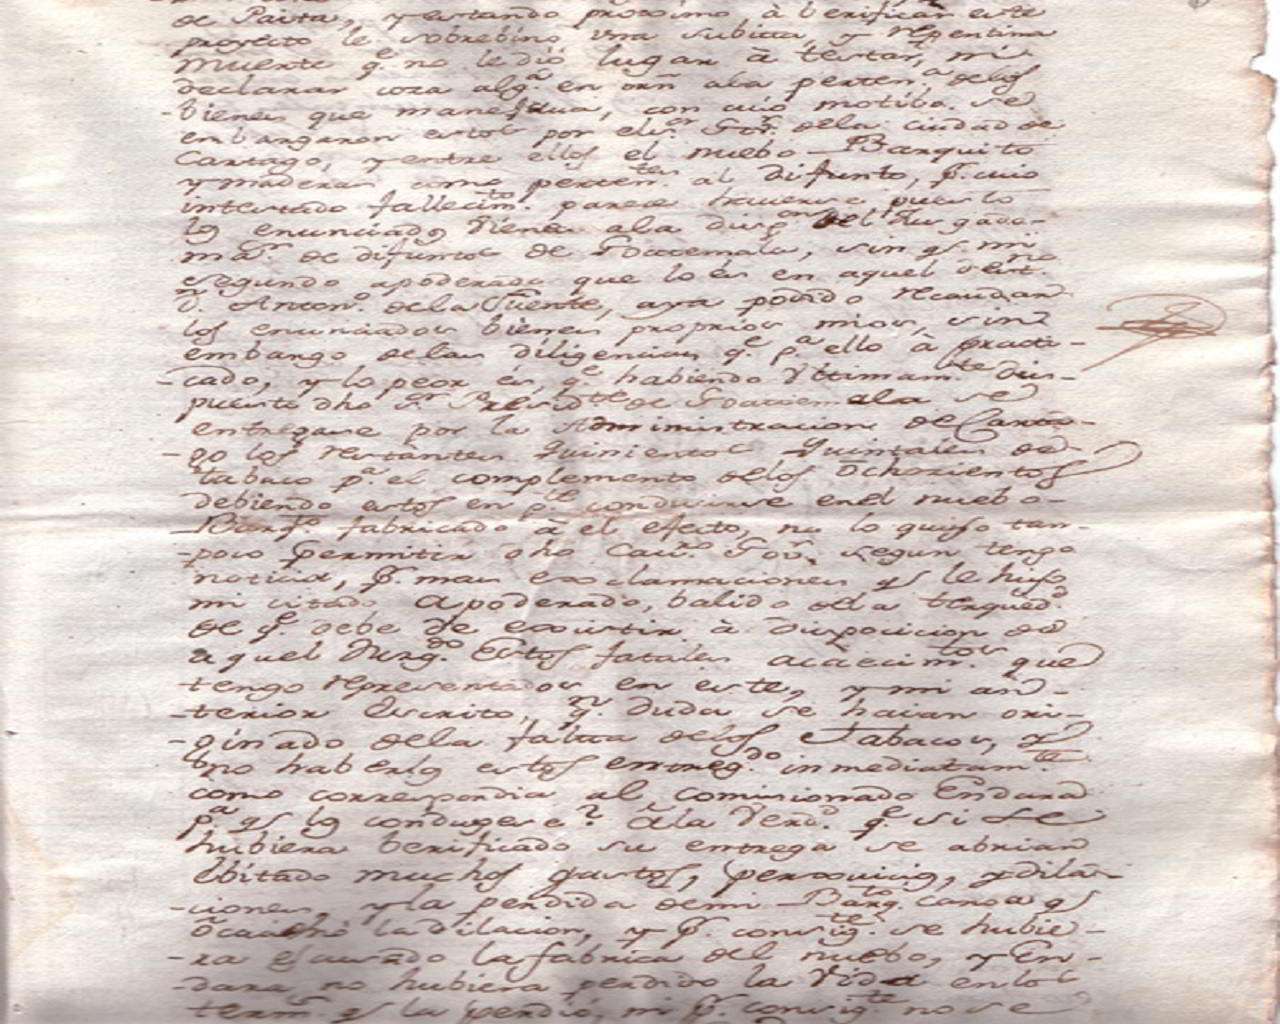 de Paita, y estando proximo, à berificar este
proyecto le sobrebino una subitta, y repentina
muerte q.e no le dió lugar à testar, ni
declarar cosa alg.a en orñ ala perten.a delos
bienes que manejaua, con cuio motibo se
embargaron estos por el s.r Gov.r dela ciudad de
Cartago, y entre ellos el nuebo Barquito
y maderas como perten.tes al difunto, p.r cuio
intestado fallecim.to parece hauerse puesto
los enunciados vienes ala disp.on del Jusgado
m.or de difuntos de Goatemala, sin q.e mi
segundo apoderado que lo es en aquel
D.n Anton.o dela Fuente, aya podido recaudar
los enunciados bienes proprios mios, sin
embargo delas diligencias q.e p.a ello à practi-
-cado, y lo peor es, q.e habiendo Vltimam.te dis-
puesto dho s.r Presid.te de Goatemala se
entregase por la Administracion de Carta-
-go los restantes quinientos Quintales de
tabaco p.a el complemento delos ochocientos
debiendo estos en p.te conducirse enel nuebo
Barq.to fabricado à el efecto, no lo quiso tan-
-poco permitir dho Cau.o Gov.r segun tengo
noticia, p.r mas exclamaciones q.e le hiso
mi citado Apoderado, balido dela
de q.e debe de existir à disposicion de
aquel Jusg.do Estos fatales acaecim.tos que
tengo representados en este, y mi an-
-terior Escrito, q.n duda se haian ori-
-ginado dela falta delos Tabacos, y
no haberlos estos entreg.do inmediatam.te
como correspondia al comisionado Endara
p.a q.e los condugese? Ala Verd.d q.e si se
hubiera berificado su entrega se abrian
Ebitado muchos gastos, perxuicios, y dila-
-ciones, y la perdida demi Barq.to canoa q.e
ocacionó la dilacion, y p.r consig.te se hubie-
-ra escusado la fabrica del nuebo, y En-
-dara no hubiera perdido la Vida enlos
term.s q.e la perdió, ni p.r consig.te no se